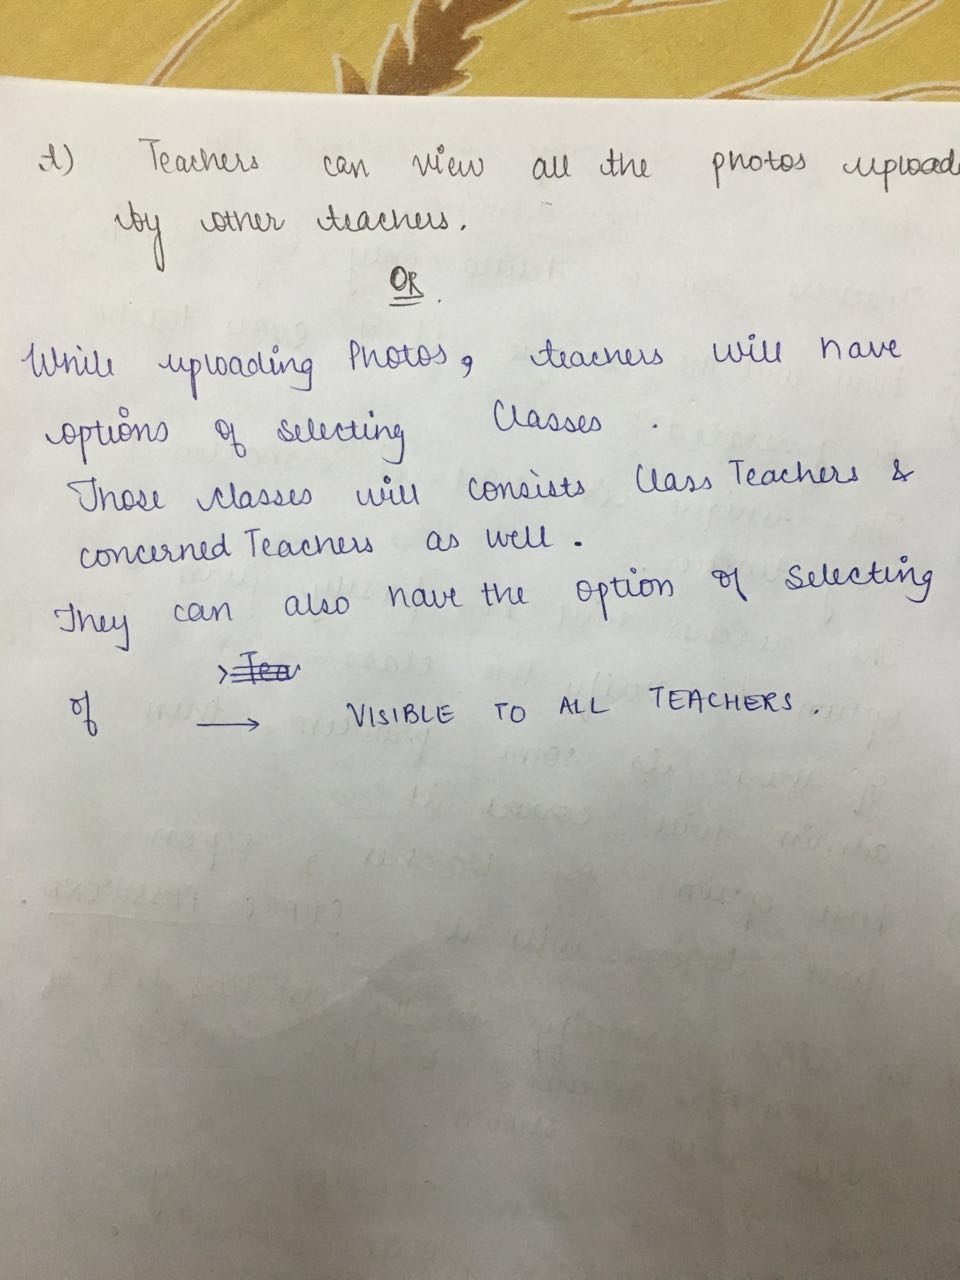 t) Teachers can view all the photos upload
by other teachers.
OR.
While uploading Photos, teachers will have
options of selecting Classes.
Those classes will consists Class Teachers &
concerned Teachers as well.
They can also have the option of selecting
of → VISIBLE TO ALL TEACHERS.